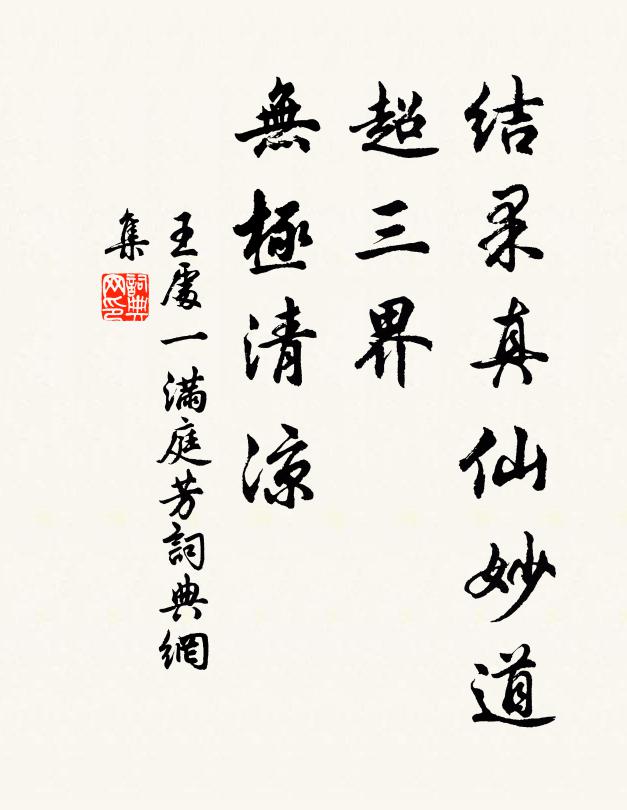 結果真仙妙道
超三界
無極清涼
王處一滿庭芳詞典網
集
詞典
網印